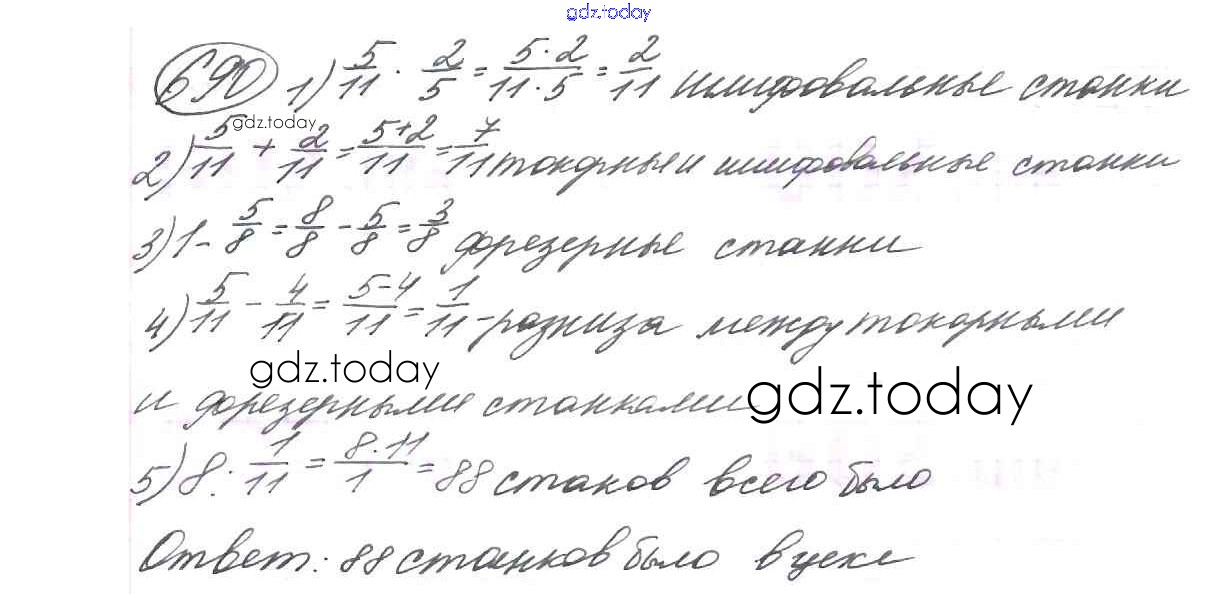 gdz.today
690 1) 5/11 · 2/5 = 5·2/11·5 = 2/11 шлифовальные станки
gdz.today
2) 5/11 + 2/11 = 5+2/11 = 7/11 токарные и шлифовальные станки
3) 1 - 5/8 = 8/8 - 5/8 = 3/8 фрезерные станки
4) 5/11 - 4/11 = 5-4/11 = 1/11 - разница между токарными
gdz.today
и фрезерными станками
gdz.today
5) 8 : 1/11 = 8·11/1 = 88 станков всего было
Ответ: 88 станков было в цехе